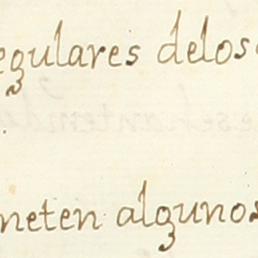 egulares delos
neten algunos